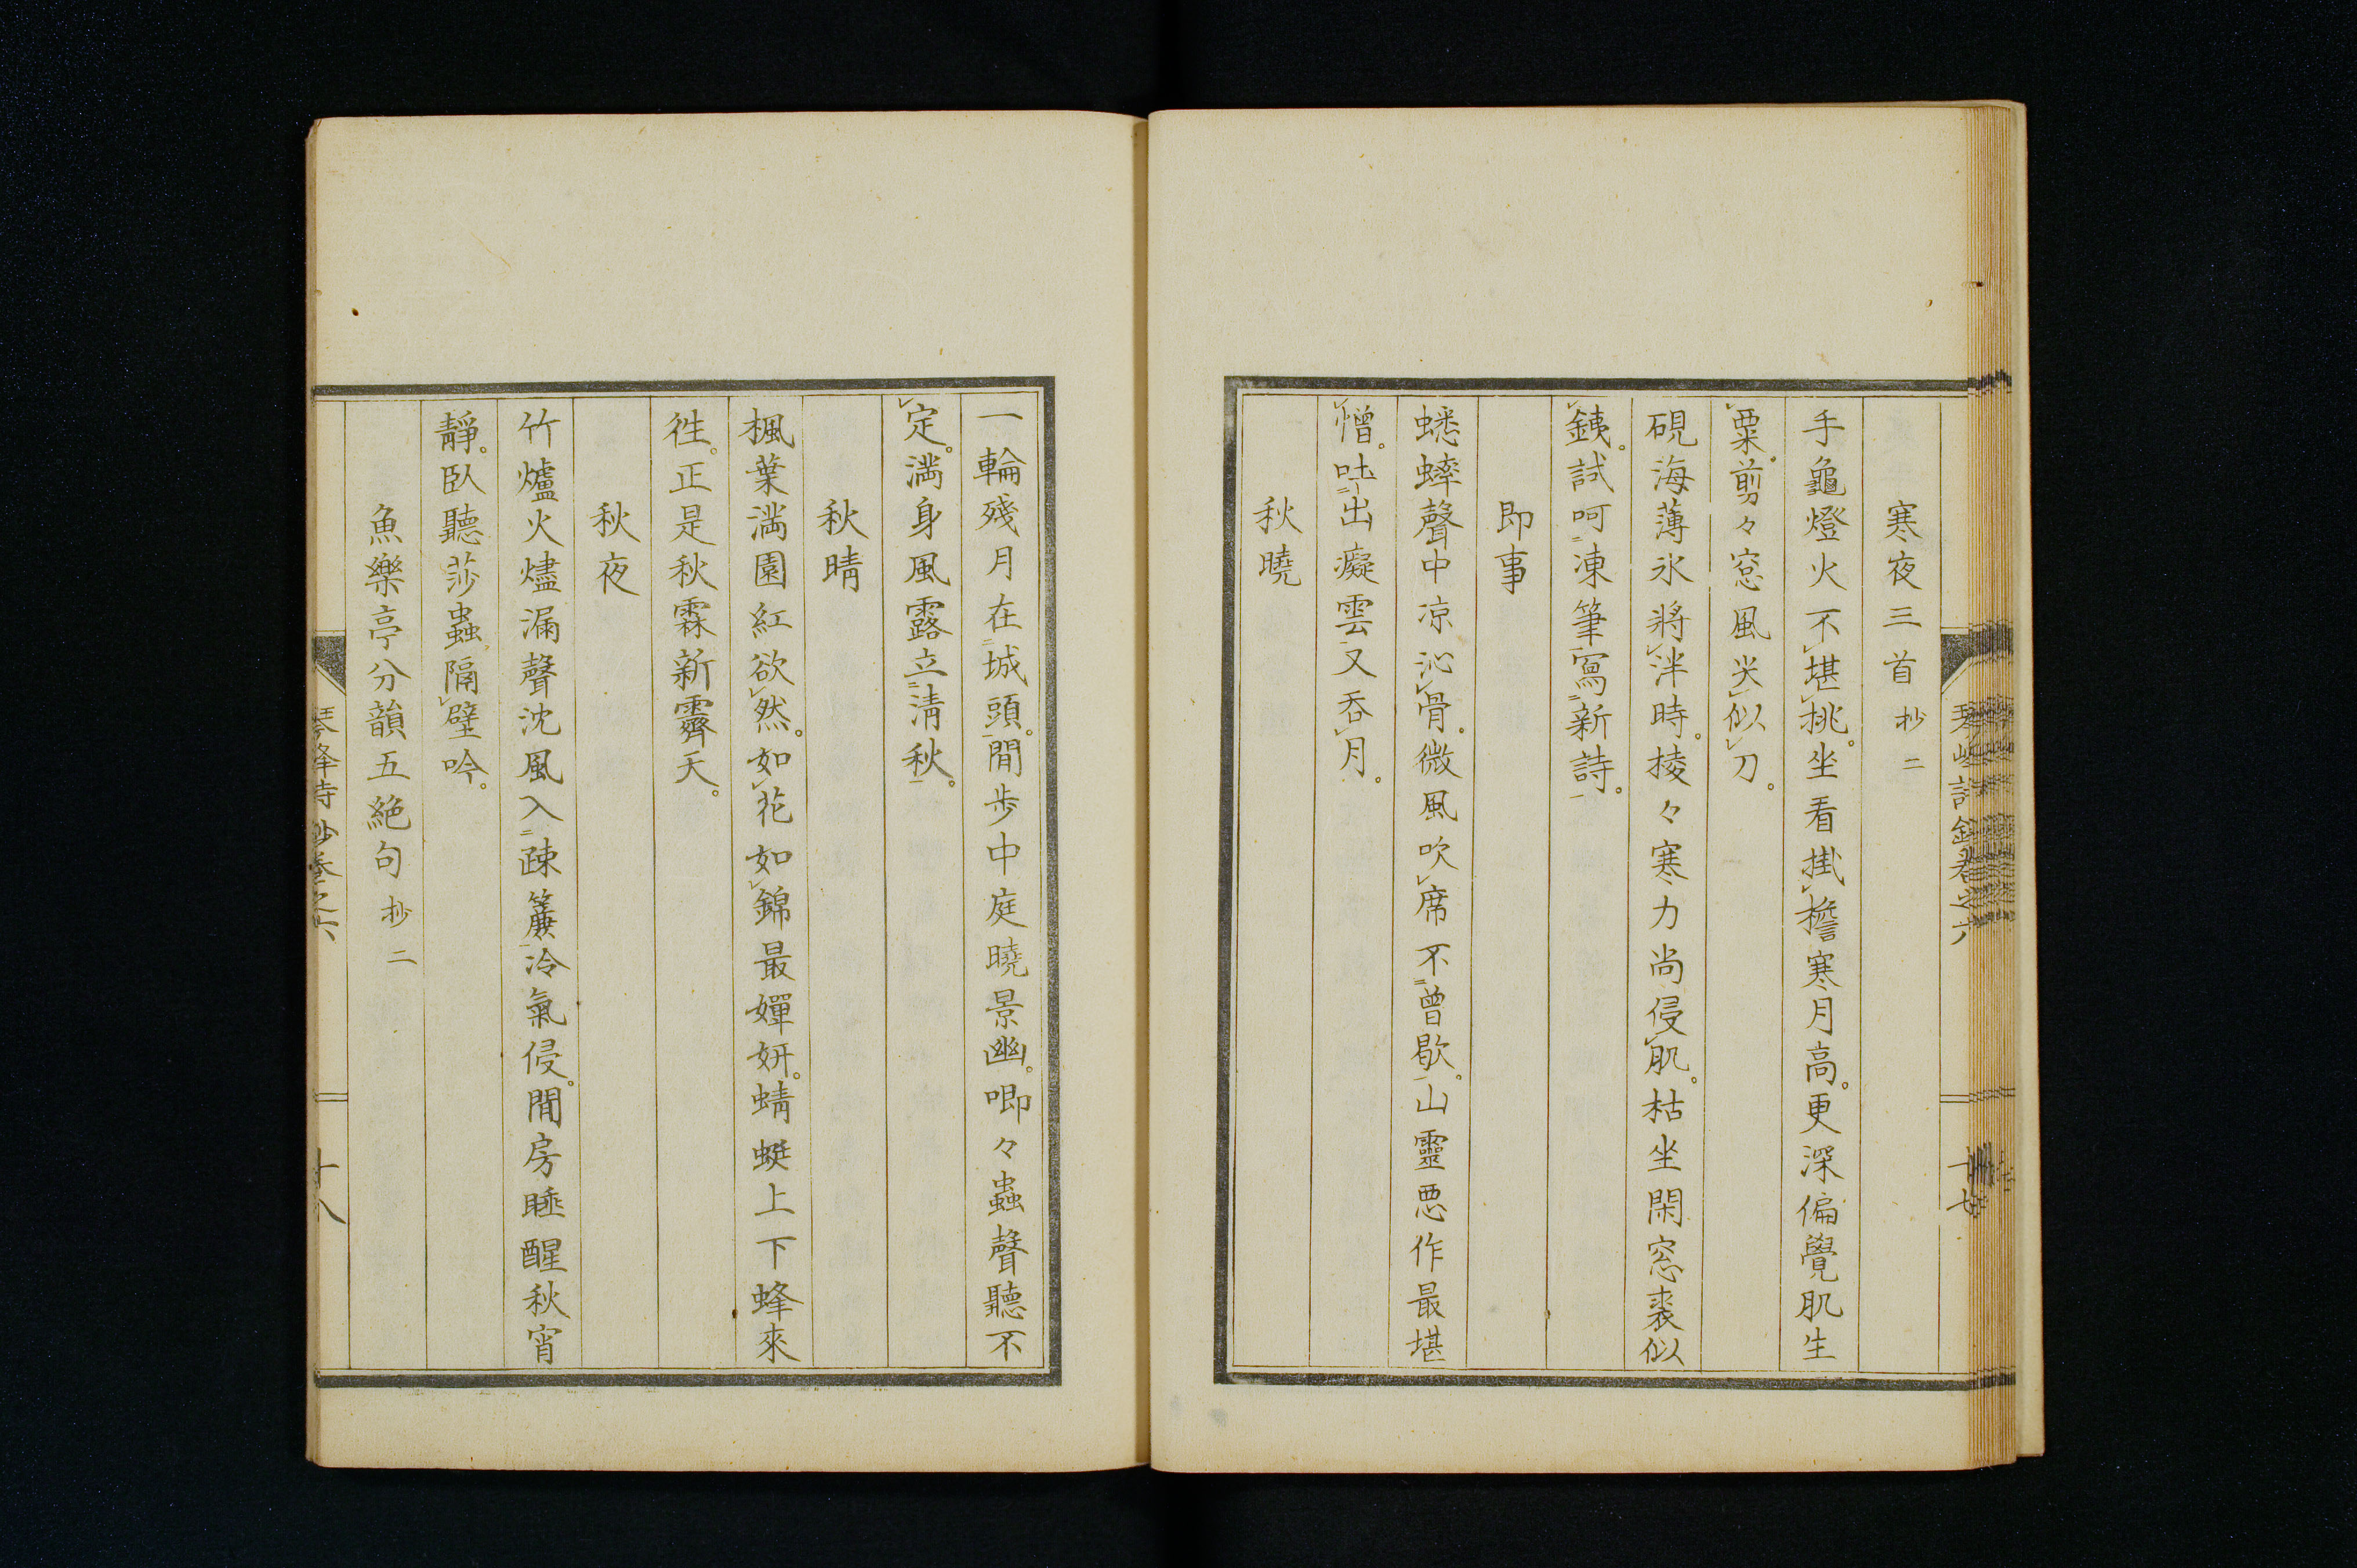 寒夜三首 抄二
手龜燈火不堪挑。坐看掛檐寒月高。更深偏覺肌生
粟。剪々窓風尖似刀。
硯海薄氷將泮時。棱々寒力尚侵肌。枯坐閑窓裘似
銕。試呵凍筆寫新詩。
即事
蟋蟀聲中凉沁骨。微風吹席不曾歇。山靈惡作最堪
憎。吐出癡雲又吞月。
秋曉
一輪殘月在城頭。間步中庭曉景幽。唧々蟲聲聽不
定。満身風露立清秋。
秋晴
楓葉満園紅欲然。如花如錦最嬋妍。蜻蜓上下蜂來
徃。正是秋霖新霽天。
秋夜
竹爐火燼漏聲沈風入疎簾冷氣侵。間房睡醒秋宵
靜。臥聽莎蟲隔壁吟。
魚樂亭分韻五絶句 抄二
十八